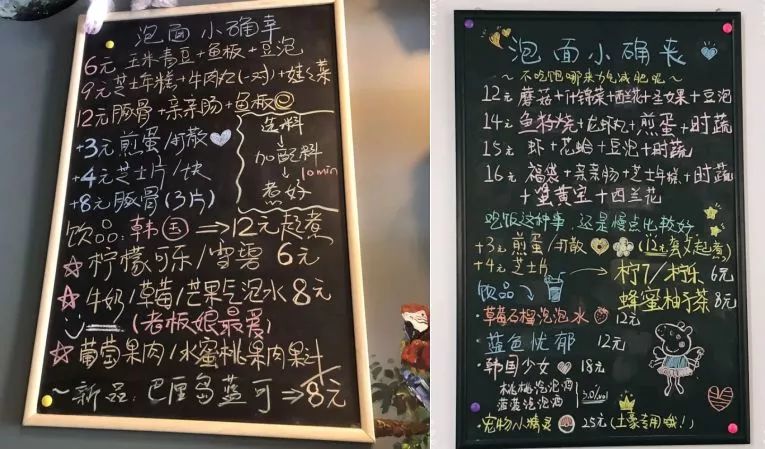 泡面小确幸
6元 玉米青豆+鱼板+豆泡
9元 芝士年糕+牛肉丸(一对)+娃娃菜
12元 豚骨+亲亲肠+鱼板
+3元 煎蛋/可散
+4元 芝士片/块
+8元 豚骨(3片)
选料
加配料
10min
煮好
饮品:韩国⇒12元起煮
柠檬可乐/雪碧 6元
牛奶/草莓/芒果气泡水 8元
(老板娘最爱)
葡萄果肉/水蜜桃果肉果汁
~新品:巴厘岛蓝可⇒8元
泡面小确丧
~不吃饱哪来力气减肥呢~
12元 蘑菇+什锦菜+西兰花+圣女果+豆泡
14元 鱼籽烧+龙虾丸+煎蛋+时蔬
15元 虾+花蛤+豆泡+时蔬
16元 福袋+亲亲肠+芝士年糕+时蔬
+蟹黄宝+西兰花
吃饭这种事,还是慢点比较好
+3元 煎蛋/可散 (12元起煮)
+4元 芝士片
柠7/柠乐 6元
饮品
蜂蜜柚子茶 8元
草莓石榴泡泡水 12元
·蓝色忧郁 12元
·韩国少女 18元
桃桃泡泡酒
菠菠泡泡酒
3.0%vol
·宠物小精灵 25元(土豪专用哦!)